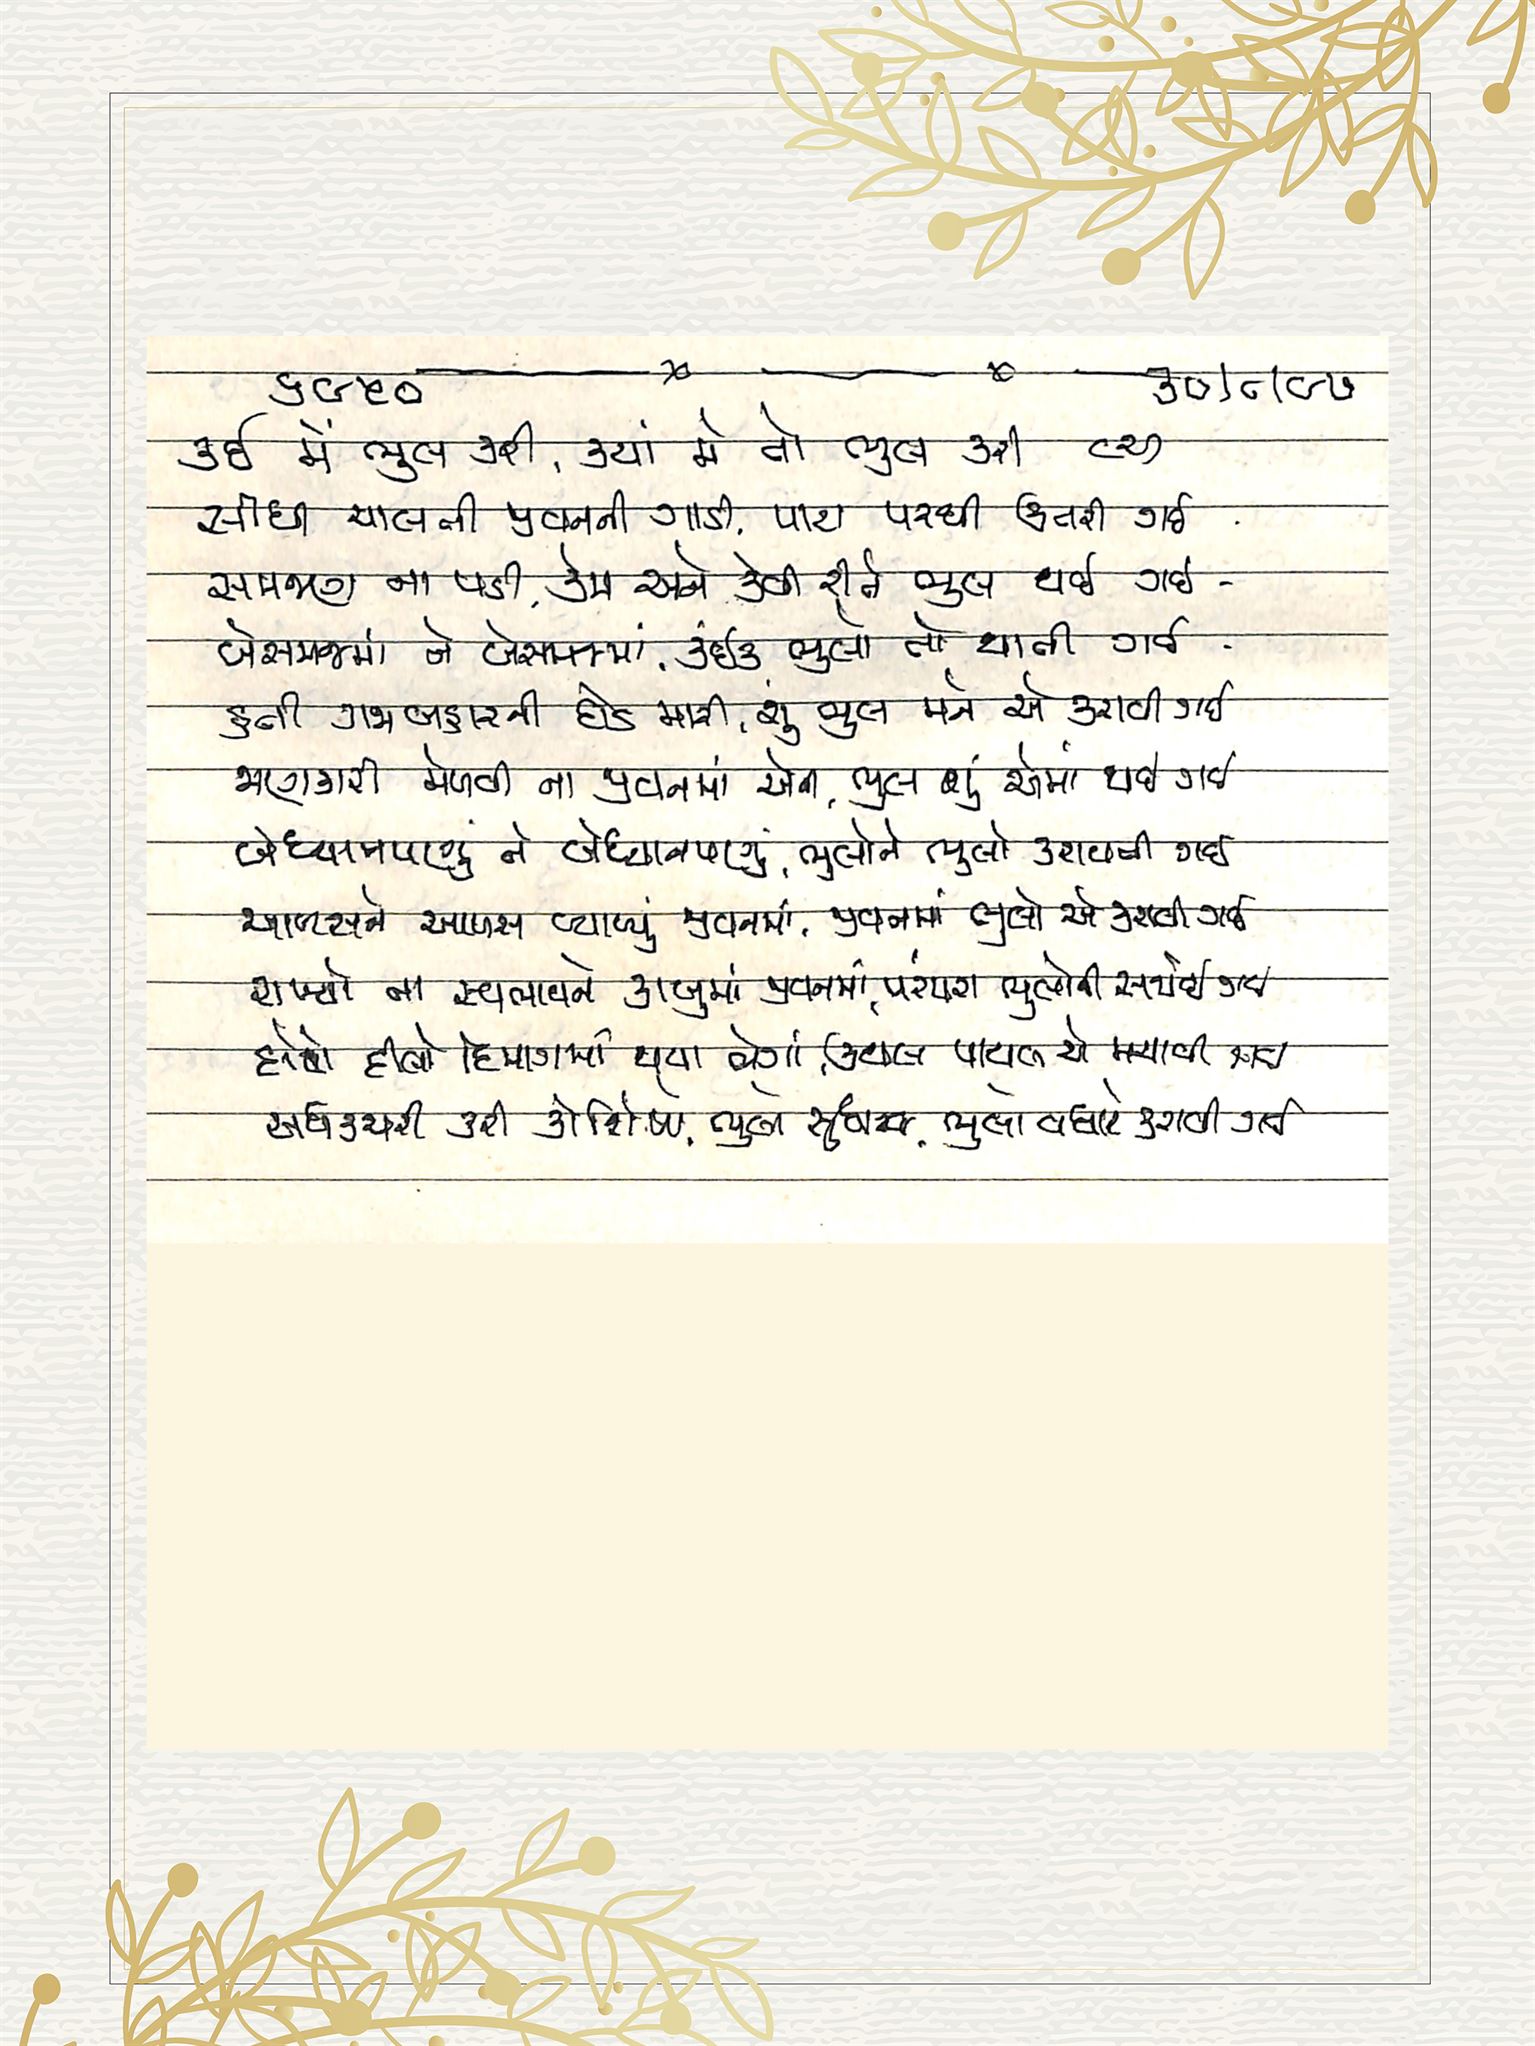 ૬૯૫૦ ૩૦/૮/૯૭
કઈ મેં ભુલ કરી, ક્યાં મે તો ભુલ કરી
સીધી ચાલતી જીવનની ગાડી, પાટા પરથી ઉતરી ગઈ
સમજણ ના પડી, કેમ અને કેવી રીતે ભુલ થઈ ગઈ -
બેસમજમાં ને બેસમજમાં, કંઈક ભુલો તો થાતી ગઈ -
હતી ગજબહારની દોડ મારી, શું ભુલ મને એ કરાવી ગઈ
જાણકારી મેળવી ના જીવનમાં એની, ભુલ શું એમાં થઈ ગઈ
બેધ્યાનપણું ને બેધ્યાનપણું, ભુલોને ભુલો કરાવતી ગઈ
આળસને આળસ વ્યાપ્યું જીવનમાં, જીવનમાં ભુલો એ કરાવી ગઈ
રાખ્યો ના સ્વભાવને કાબુમાં જીવનમાં, પરંપરા ભુલોની સર્જાઈ ગઈ
દિમાગમાં થયા ભેગાં, ઉથલ પાથલ એ મચાવી ગઈ
અધકચરી કરી કોશિશો, ભુલો સુધારવા, ભુલો વધારે કરાવી ગઈ